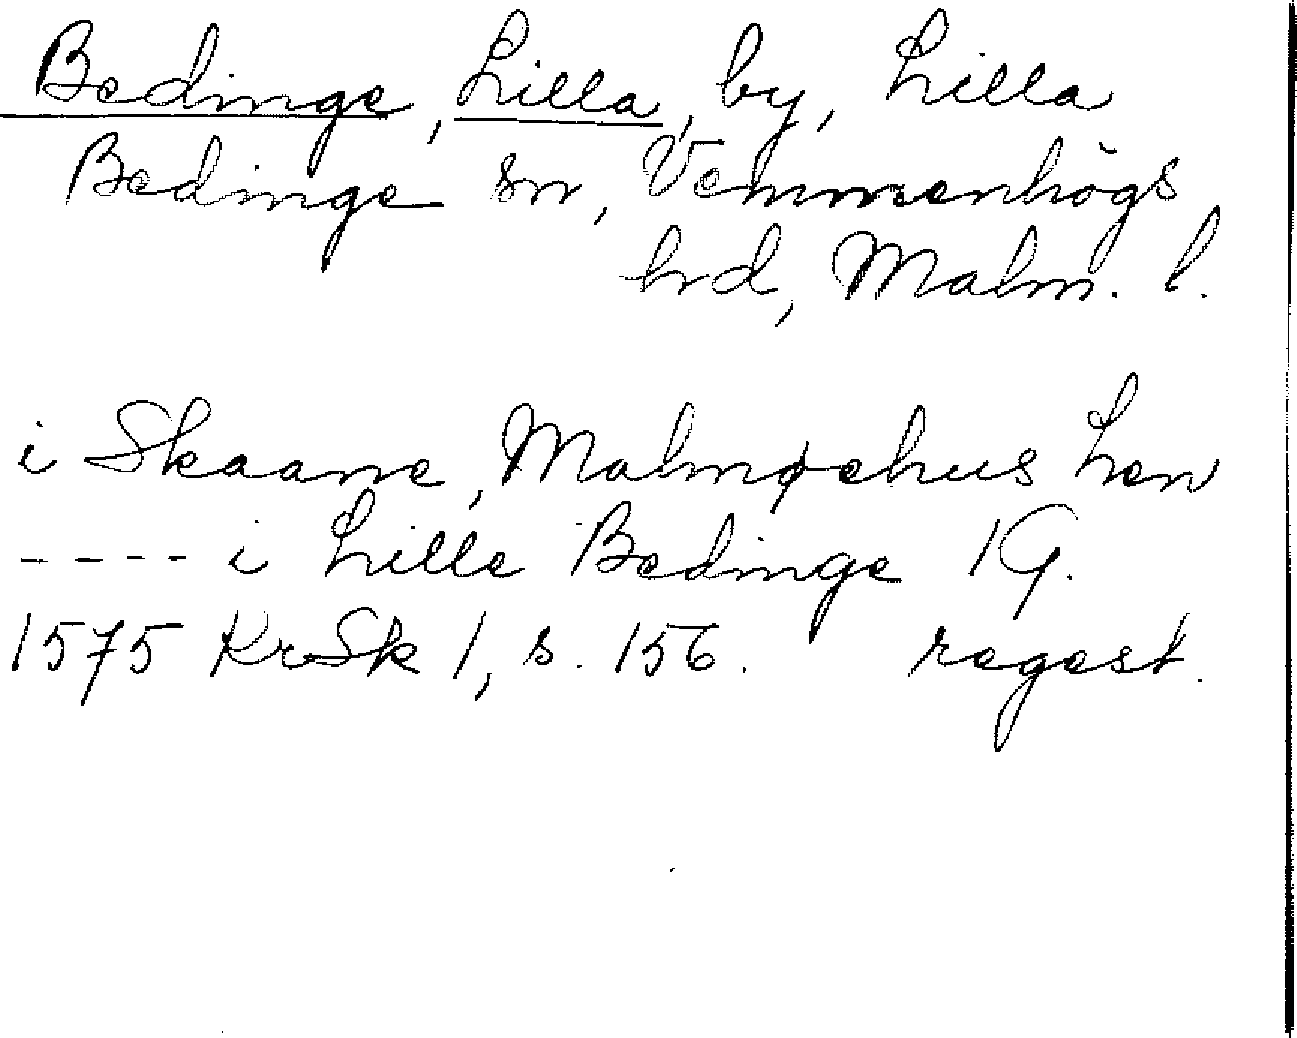 Bedinge, Lilla, by, Lilla
Bedinge sn, Vemmenhögs
hrd, Malm. l.
i Skaane, Malmøehus Len
---- i Lille Bedinge 1 G.
1575 KrSk 1, s. 156. regest.